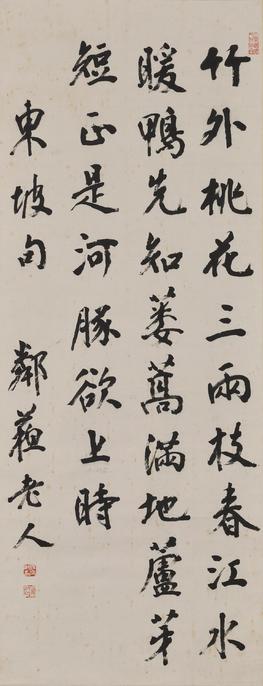 竹外桃花三兩枝春江水
暖鴨先知蔞蒿滿地蘆芽
短正是河豚欲上時
東坡句 鄰蘓老人